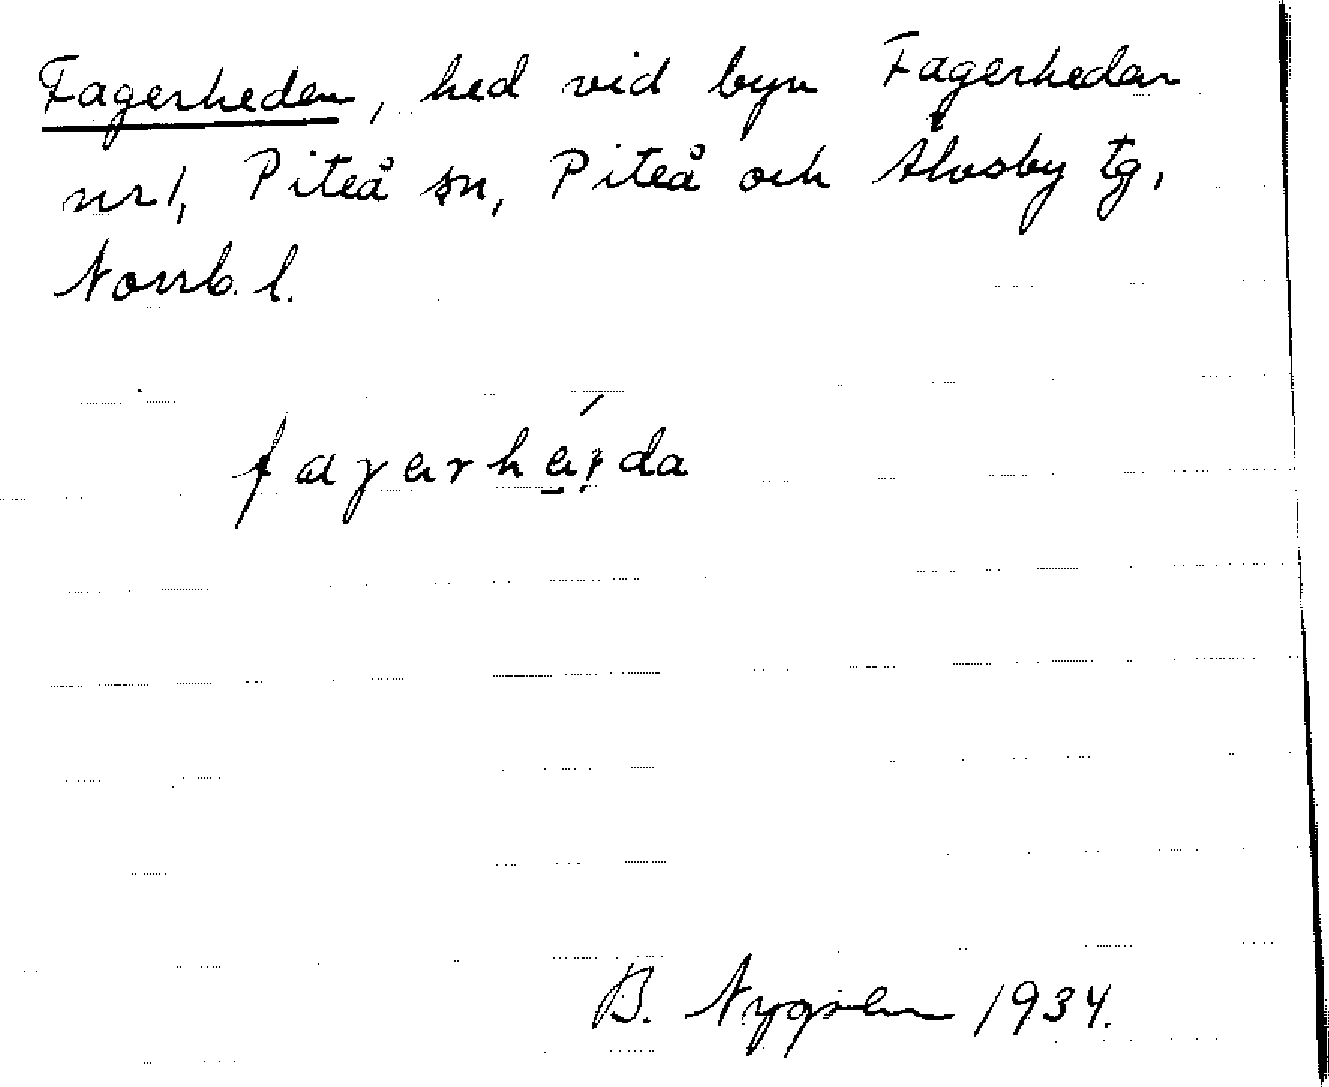 Fagerheden, hed vid byn Fagerheden
nr 1, Piteå sn, Piteå och Älvsby tg,
Norrb. l.
B. Nygren 1934.